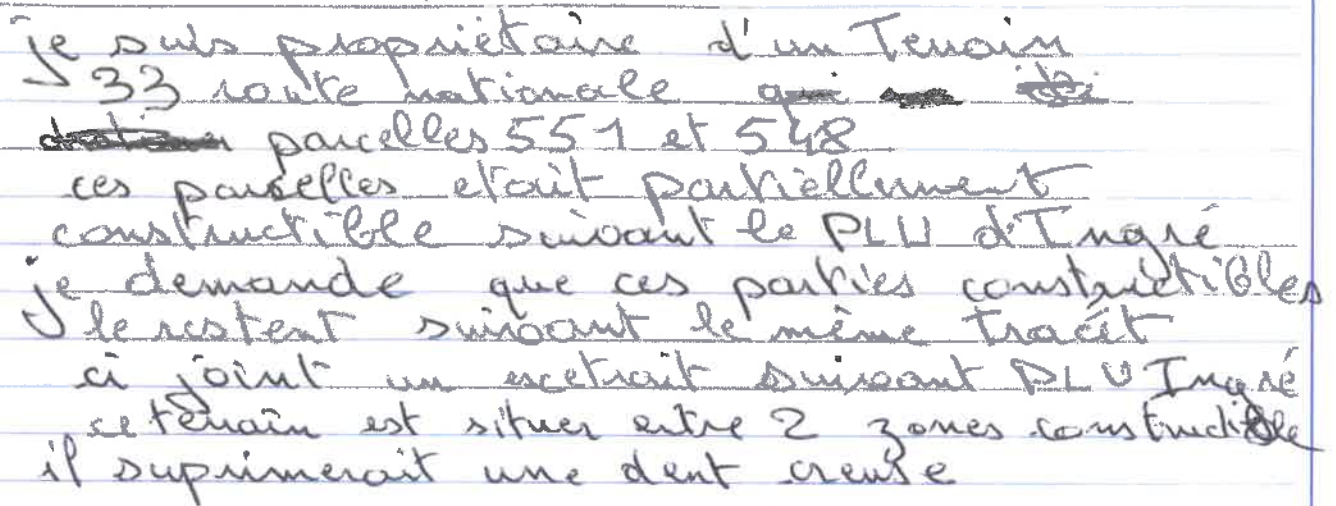 je suis propriétaire d'un Terrain
33 route nationale
parcelles 551 et 548
ces parcelles etait partiellement
constructible suivant le PLU d'Ingré
je demande que ces parties constructibles
le restent suivant le même tracét
ci joint un extrait suivant PLU Ingré
ce terrain est situer entre 2 zones constructible
il suprimerait une dent creuse